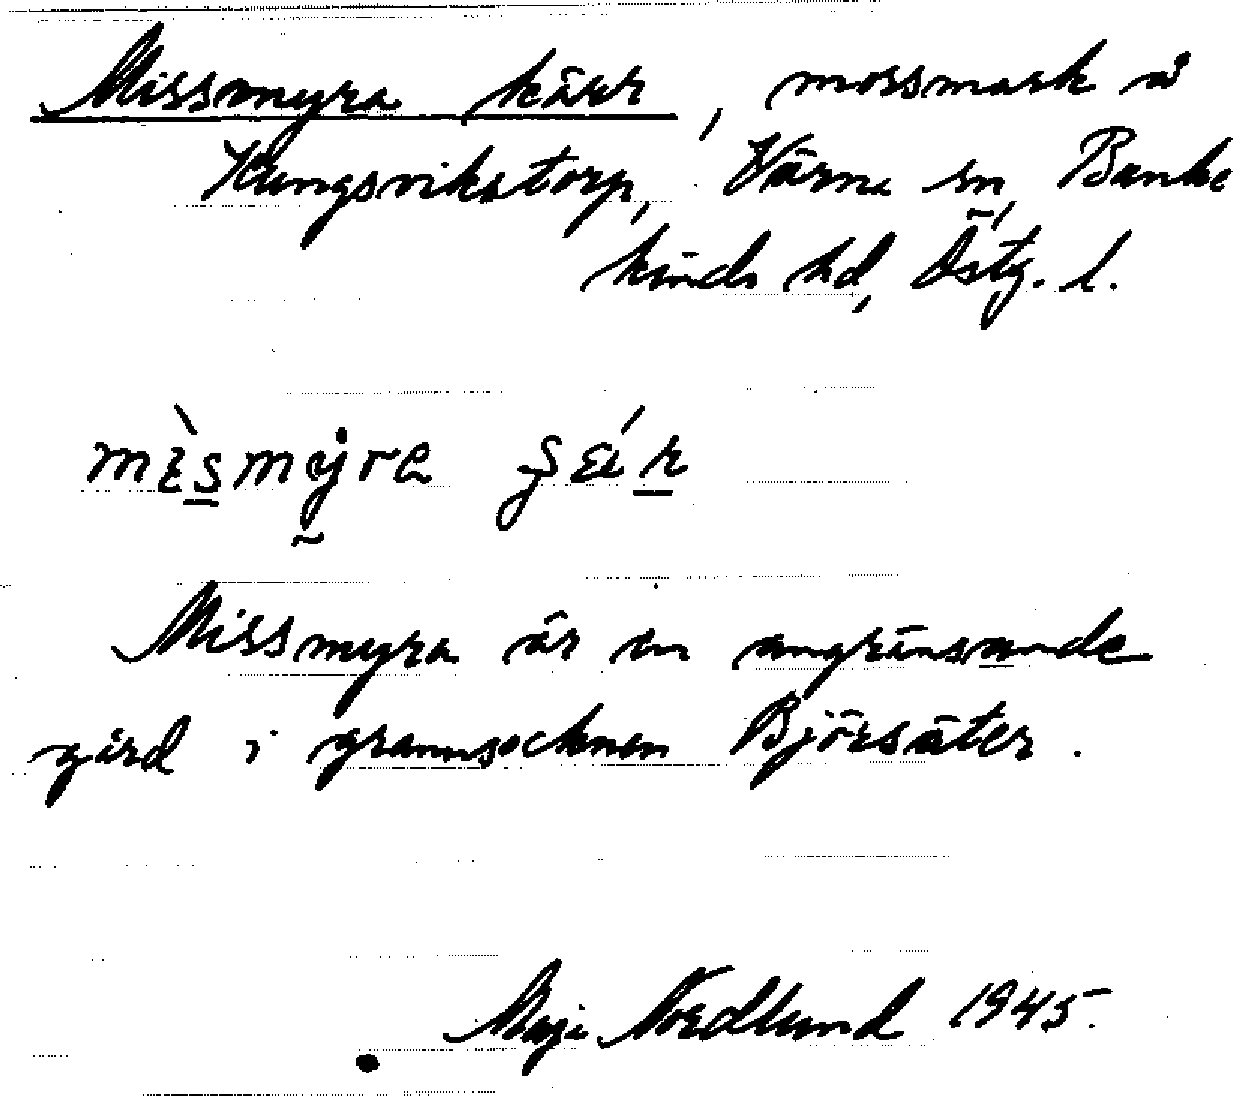 Missmyra kärr, mossmark å
Kungsvikstorp, Värna sn, Banke
kinds hd, Östg. l.
Missmyra är en angränsande
gård i grannsocknen Björsäter.
Maj Nordlund 1945.